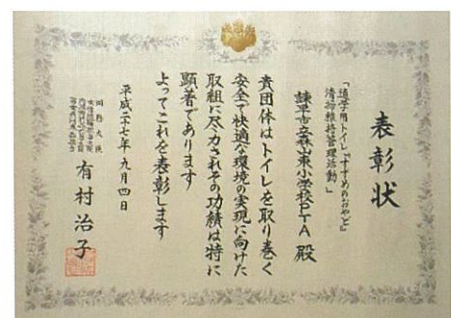 表彰状
「通学用トイレ『すずめのおやど』
清掃維持管理活動」
諫早市立森山東小学校PTA 殿
貴団体はトイレを取り巻く
安全で快適な環境の実現に向けた
取組に尽力されその功績は特に
顕著であります
よってこれを表彰します
平成二十七年九月四日
国務大臣
有村治子